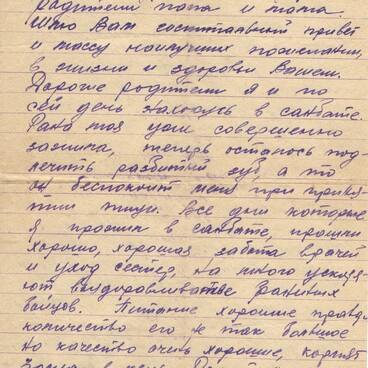 родители папа и мама.
Шлю Вам сыновний привет
и массу наилучших пожеланий,
в жизни и здоровьи Вашем.
Дорогие родители я и по
сей день нахожусь в санбате.
Рана моя уже совершенно
зажила, теперь осталось под
лечить разбитый зуб, а то
он беспокоит меня при приня-
тии пищи. Все дни которые
я прожил в санбате, прошли
хорошо, хорошая забота врачей
и уход сестер, на много ускоря-
ют выздоравливание раненых
бойцов. Питание хорошие правда
количество его не так большое
но качество очень хорошие, кормят